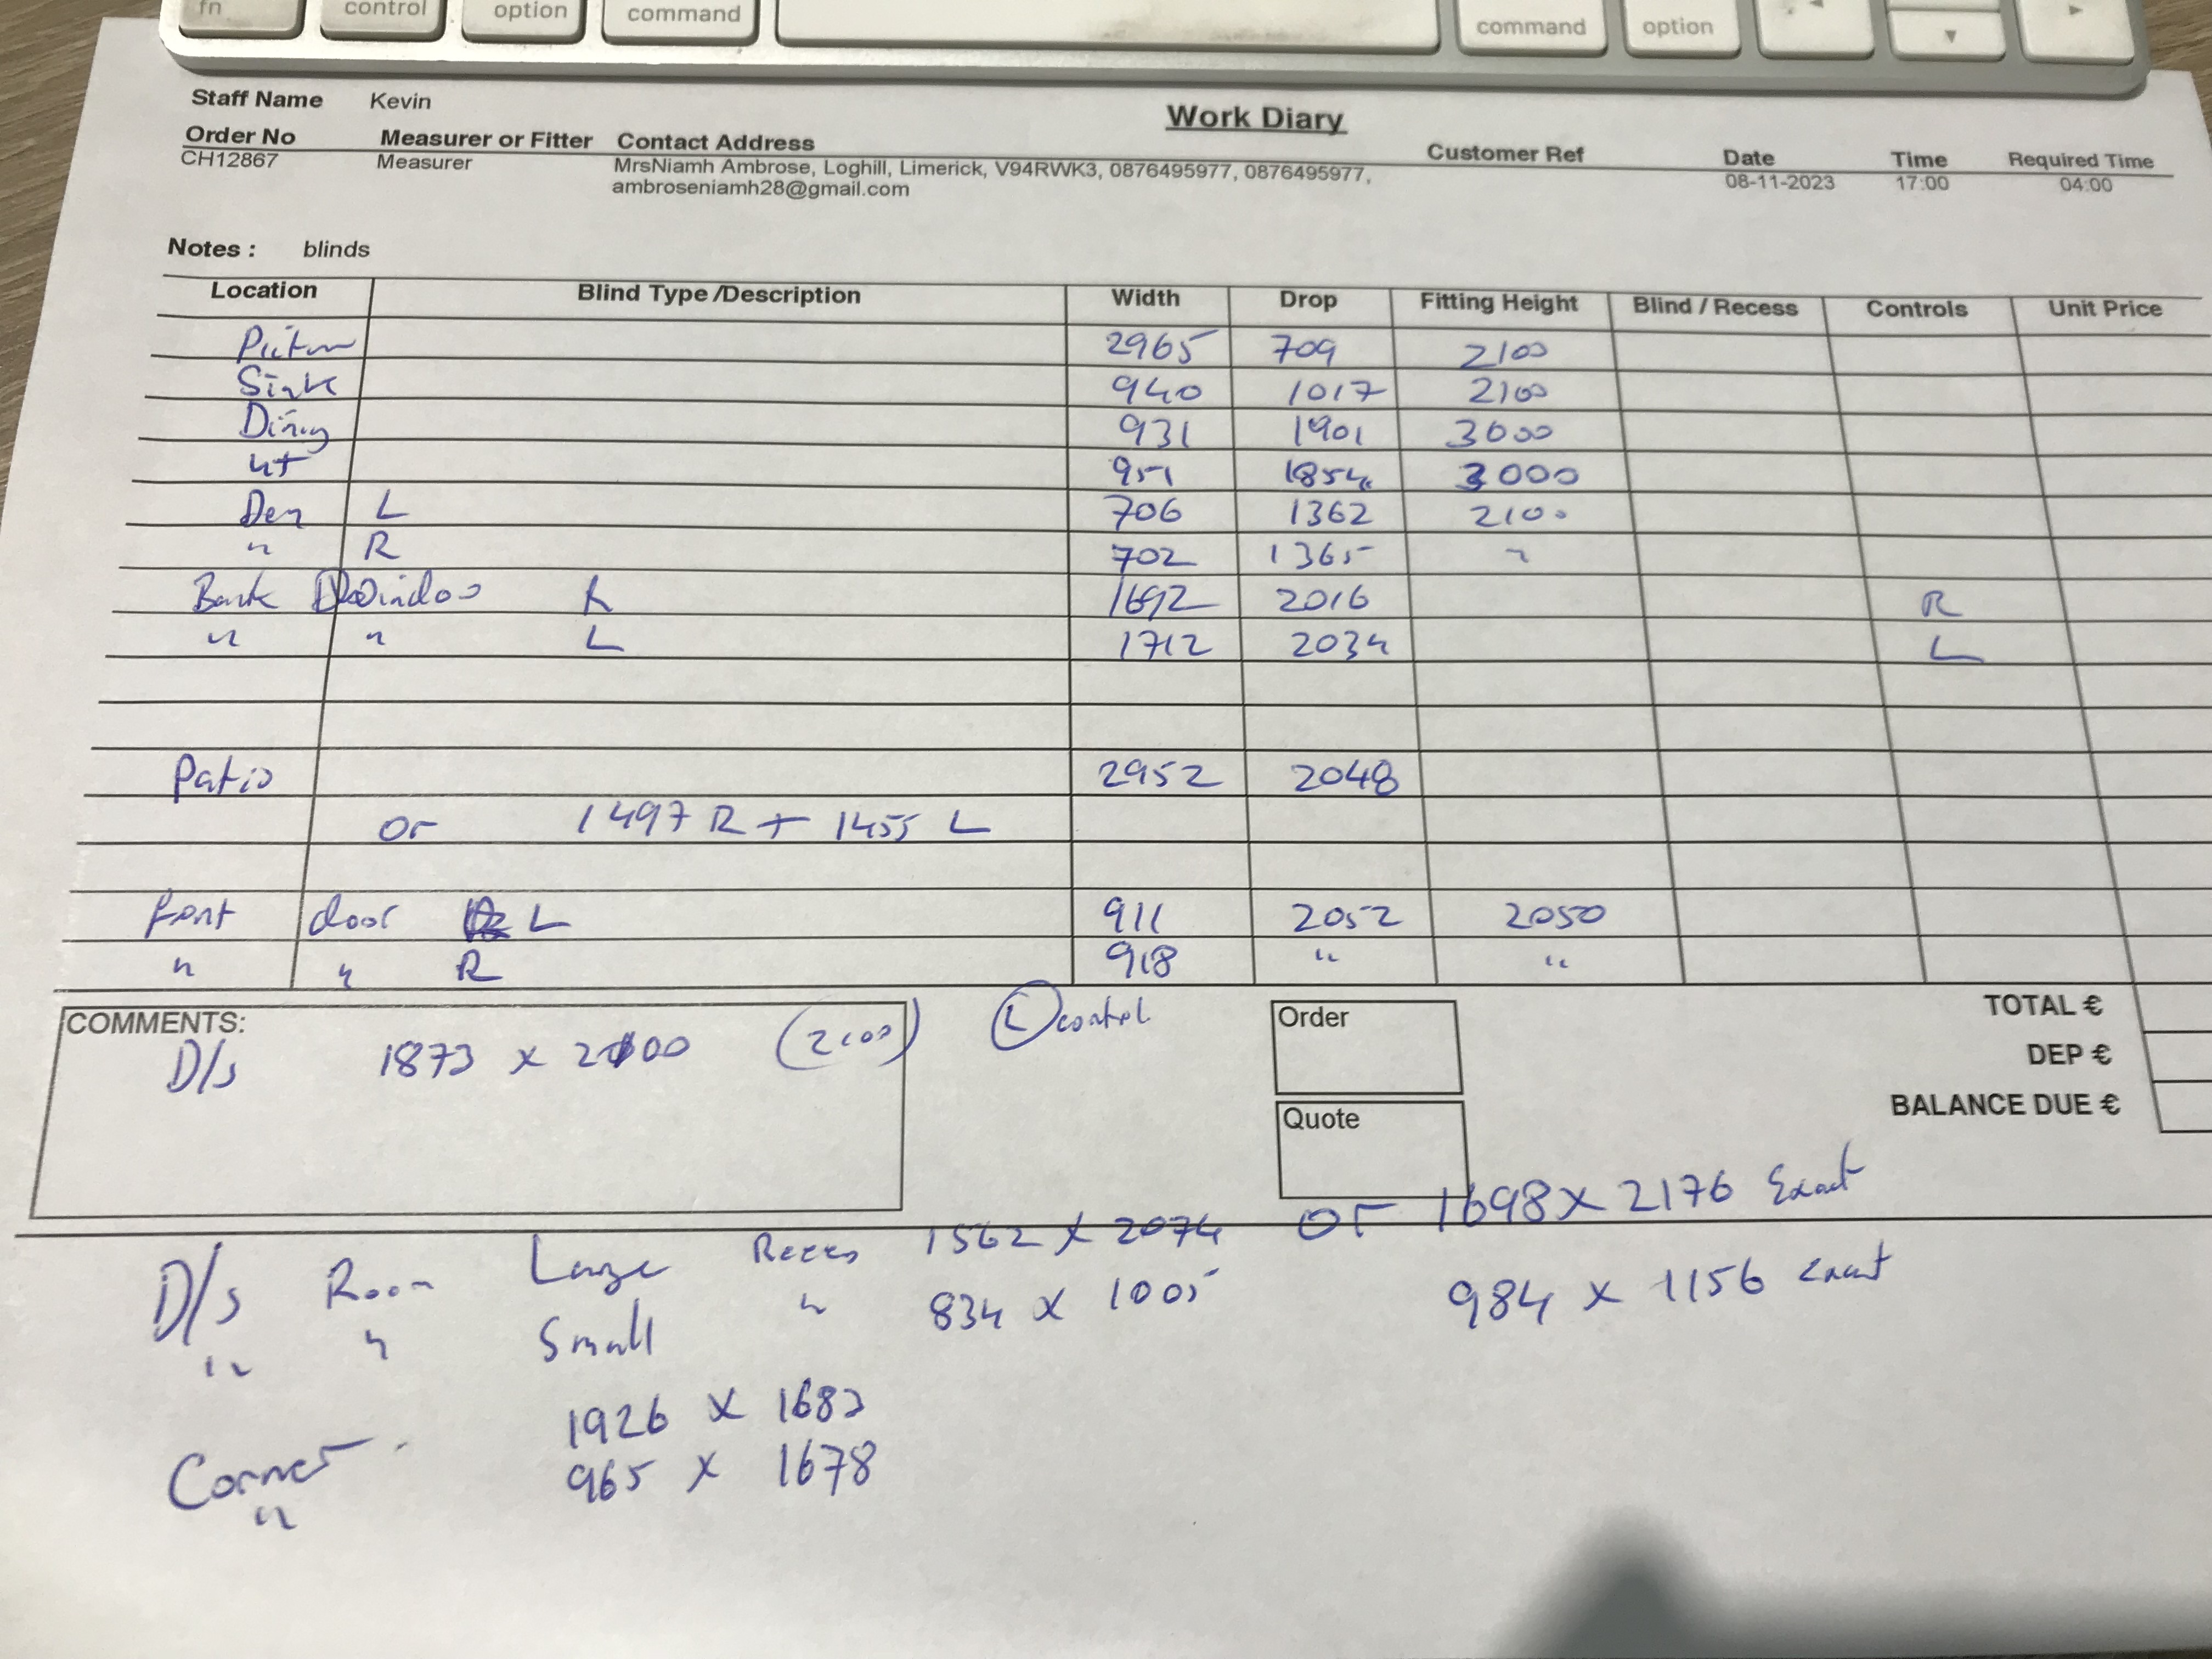 fn control option command command option
Staff Name Kevin
Work Diary
Order No Measurer or Fitter Contact Address Customer Ref Date Time Required Time
CH12867 Measurer MrsNiamh Ambrose, Loghill, Limerick, V94RWK3, 0876495977, 0876495977, 08-11-2023 17:00 04:00
ambroseniamh28@gmail.com
Notes : blinds
Location Blind Type /Description Width Drop Fitting Height Blind / Recess Controls Unit Price
2965 709 2100
Sink 940 1017 2100
Dining 931 1901 3000
ut 951 1854 3000
Den L 706 1362 2100
" R 702 1365 "
Window R 1692 2016 R
" " L 1712 2034 L
Patio 2952 2048
or 1497 R + 1455 L
front door L 911 2052 2050
" " R 918 " "
COMMENTS: L control Order TOTAL €
D/s 1873 x 2100 (2100) DEP €
Quote BALANCE DUE €
D/s Room Large Recess 1562 x 2074 or 1698 x 2176 Exact
" " Small " 834 x 1005 984 x 1156 exact
Corner 1926 x 1682
" 965 x 1678